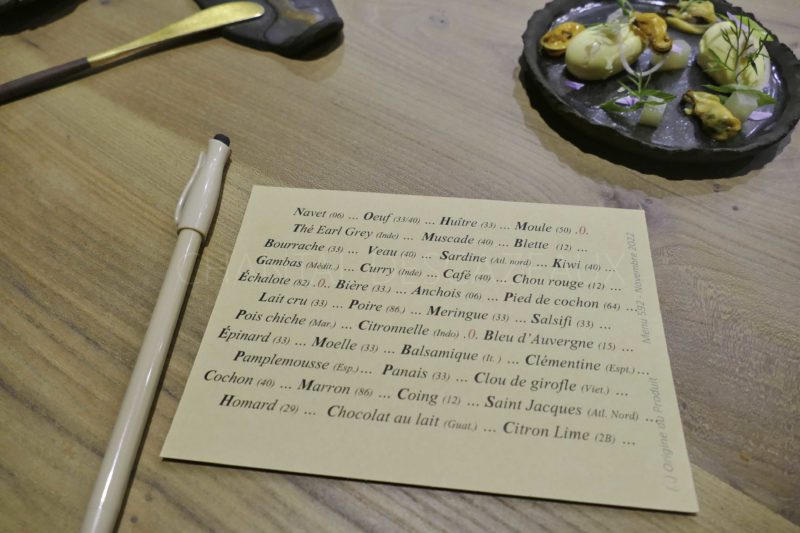 Navet (06) ... Oeuf (33/40) ... Huître (33) ... Moule (50) .0.
Thé Earl Grey (Inde) ... Muscade (40) ... Blette (12) ...
Bourrache (33) ... Veau (40) ... Sardine (Atl. nord) ... Kiwi (40) ...
Gambas (Médit.) ... Curry (Inde) ... Café (40) ... Chou rouge (12) ...
Échalote (82) .0.. Bière (33.) ... Anchois (06) ... Pied de cochon (64) ...
Lait cru (33) ... Poire (86.) ... Meringue (33) ... Salsifi (33) ...
Pois chiche (Mar.) ... Citronnelle (Indo) .0. Bleu d'Auvergne (15) ...
Épinard (33) ... Moelle (33) ... Balsamique (It.) ... Clémentine (Espt.)...
Pamplemousse (Esp.)... Panais (33) ... Clou de girofle (Viet.) ...
Cochon (40) ... Marron (86) ... Coing (12) ... Saint Jacques (Atl. Nord) ...
Homard (29) ... Chocolat au lait (Guat.) ... Citron Lime (2B) ...
(.) Origine du Produit
Menu 592 - Novembre 2022